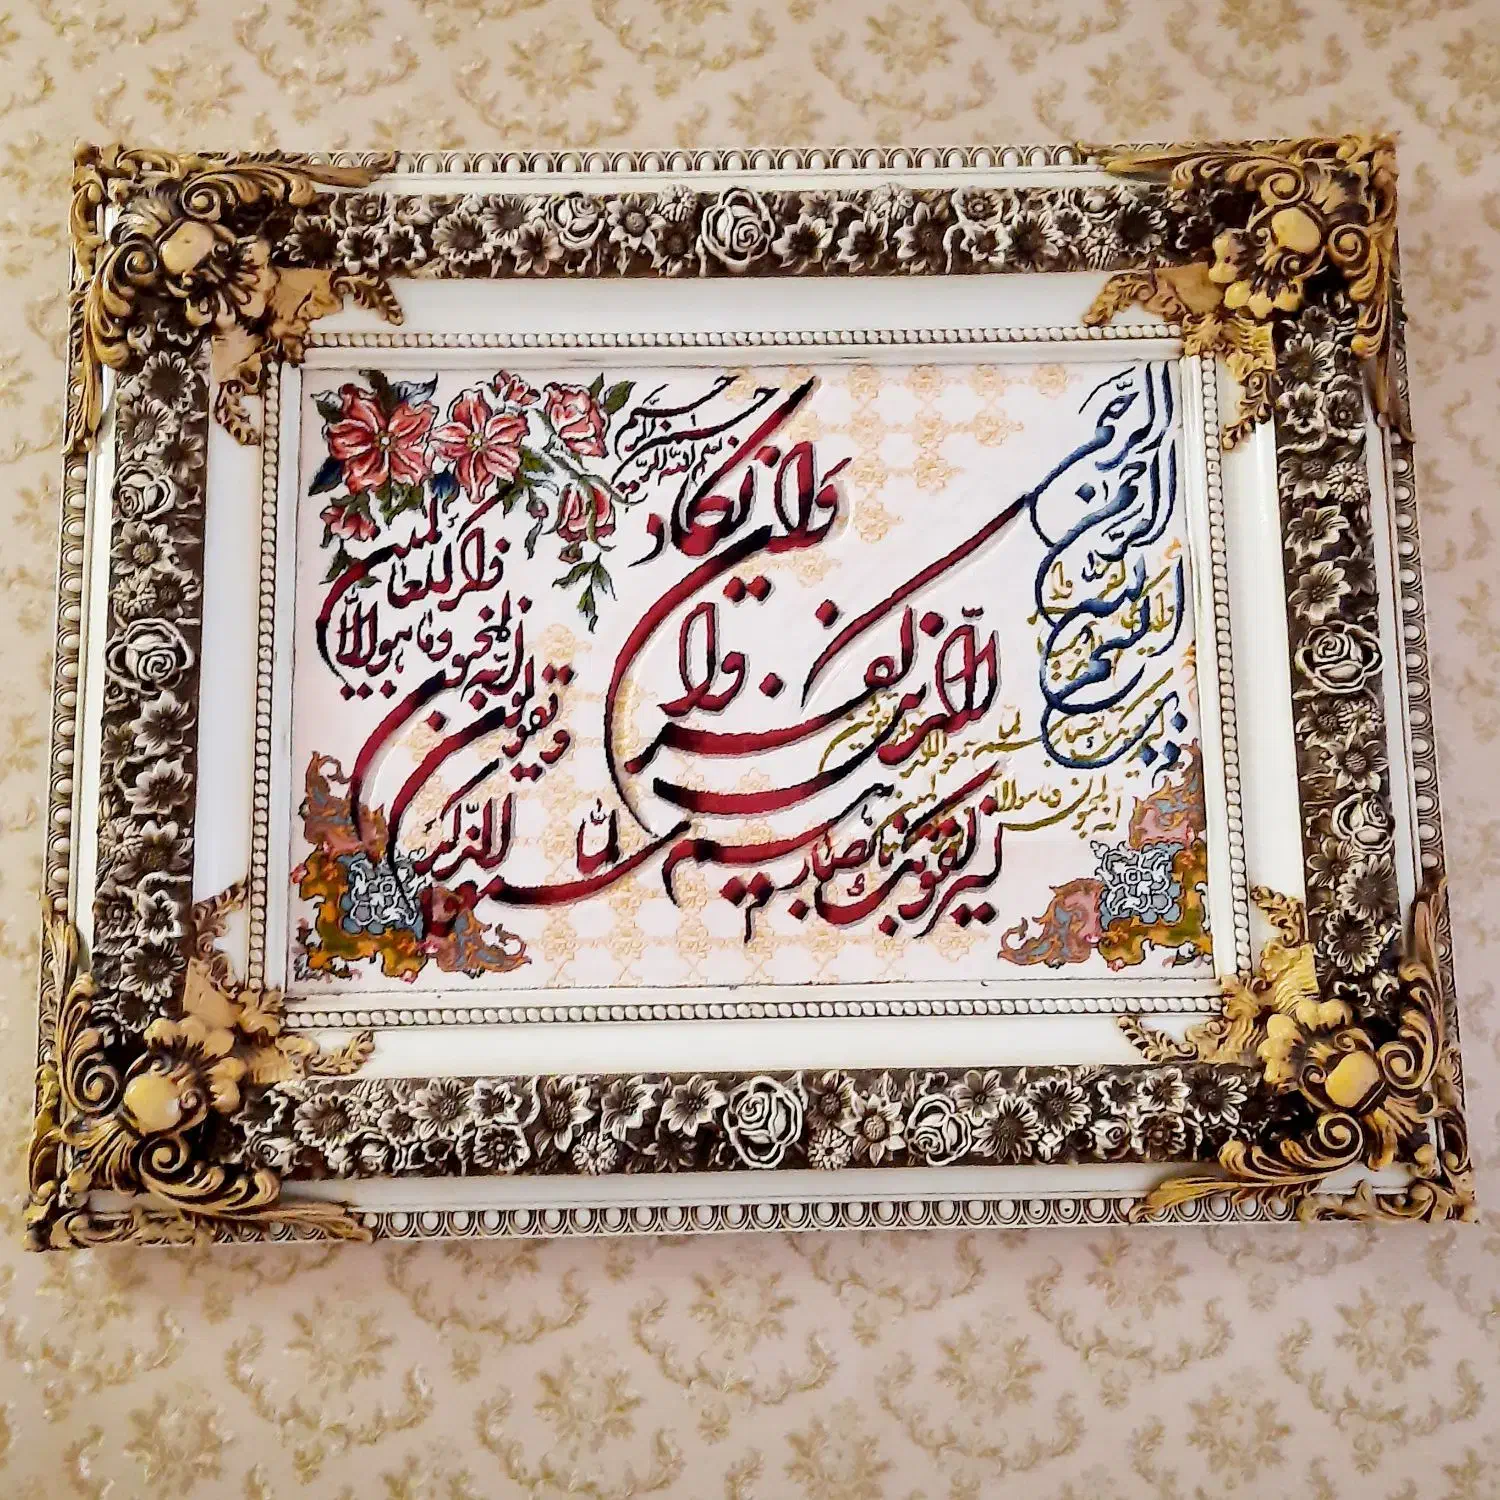 بسم الله الرحمن الرحيم
بسم الله الرحمن الرحيم
وان يكاد
الذين كفروا
ليزلقونك بابصارهم
لما سمعوا الذكر
ويقولون
انه لمجنون وما هو الا
ذكر للعالمين